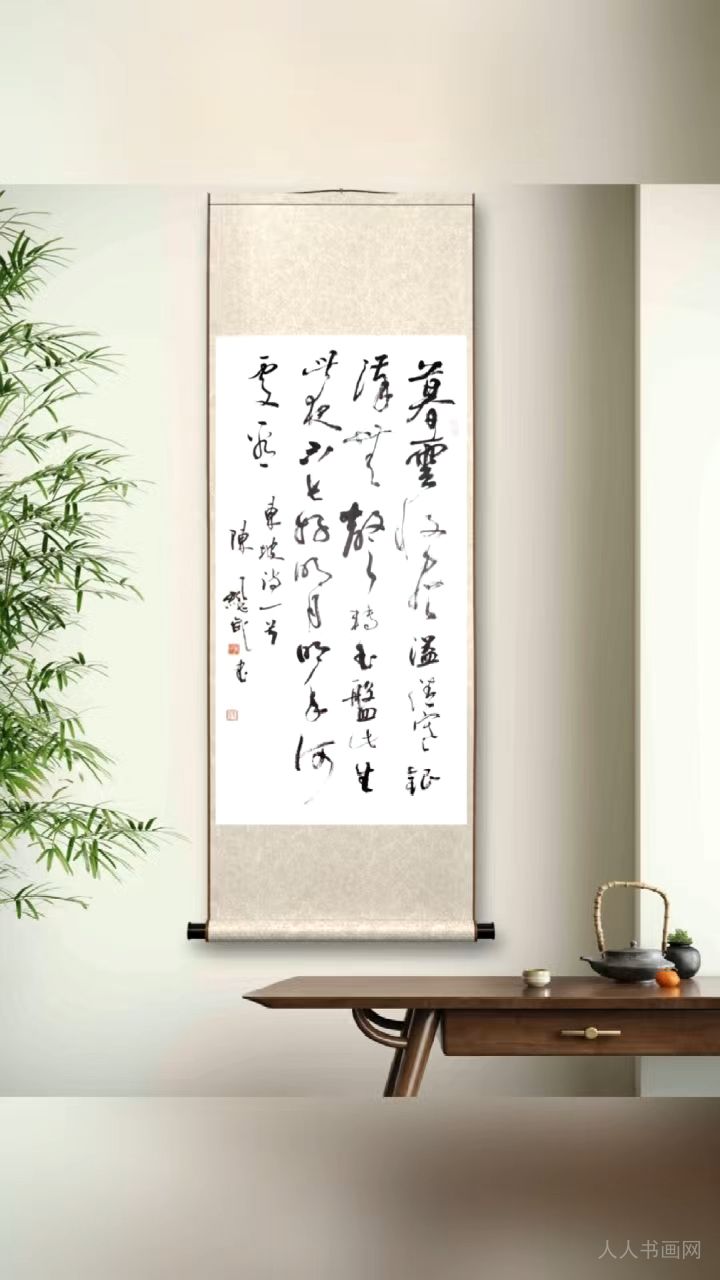 暮雲收盡溢清寒銀
漢無聲轉玉盤此生
此夜不長好明月明年何
處看
東坡詩一首
陳 書
人人书画网